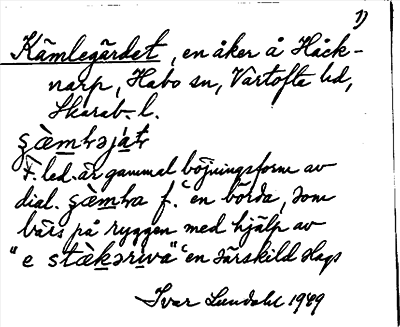 1)
Kämlegärdet, en åker å Håck-
narp, Habo sn, Vartofta hd,
Skarab. l.
F. led. är gammal böjningsform av
dial. f. "en börda, som
bärs på ryggen med hjälp av
"e en särskild slags
Ivar Lundahl 1949